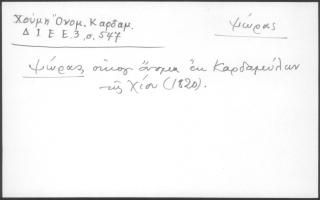 Χούμη Ὀνομ. Καρδαμ.
Δ Ι Ε Ε. 3, σ. 547
ψώρας
ψώρας οἰκογ ὄνομα ἐκ Καρδαμύλων
τῆς Χίου (1820).